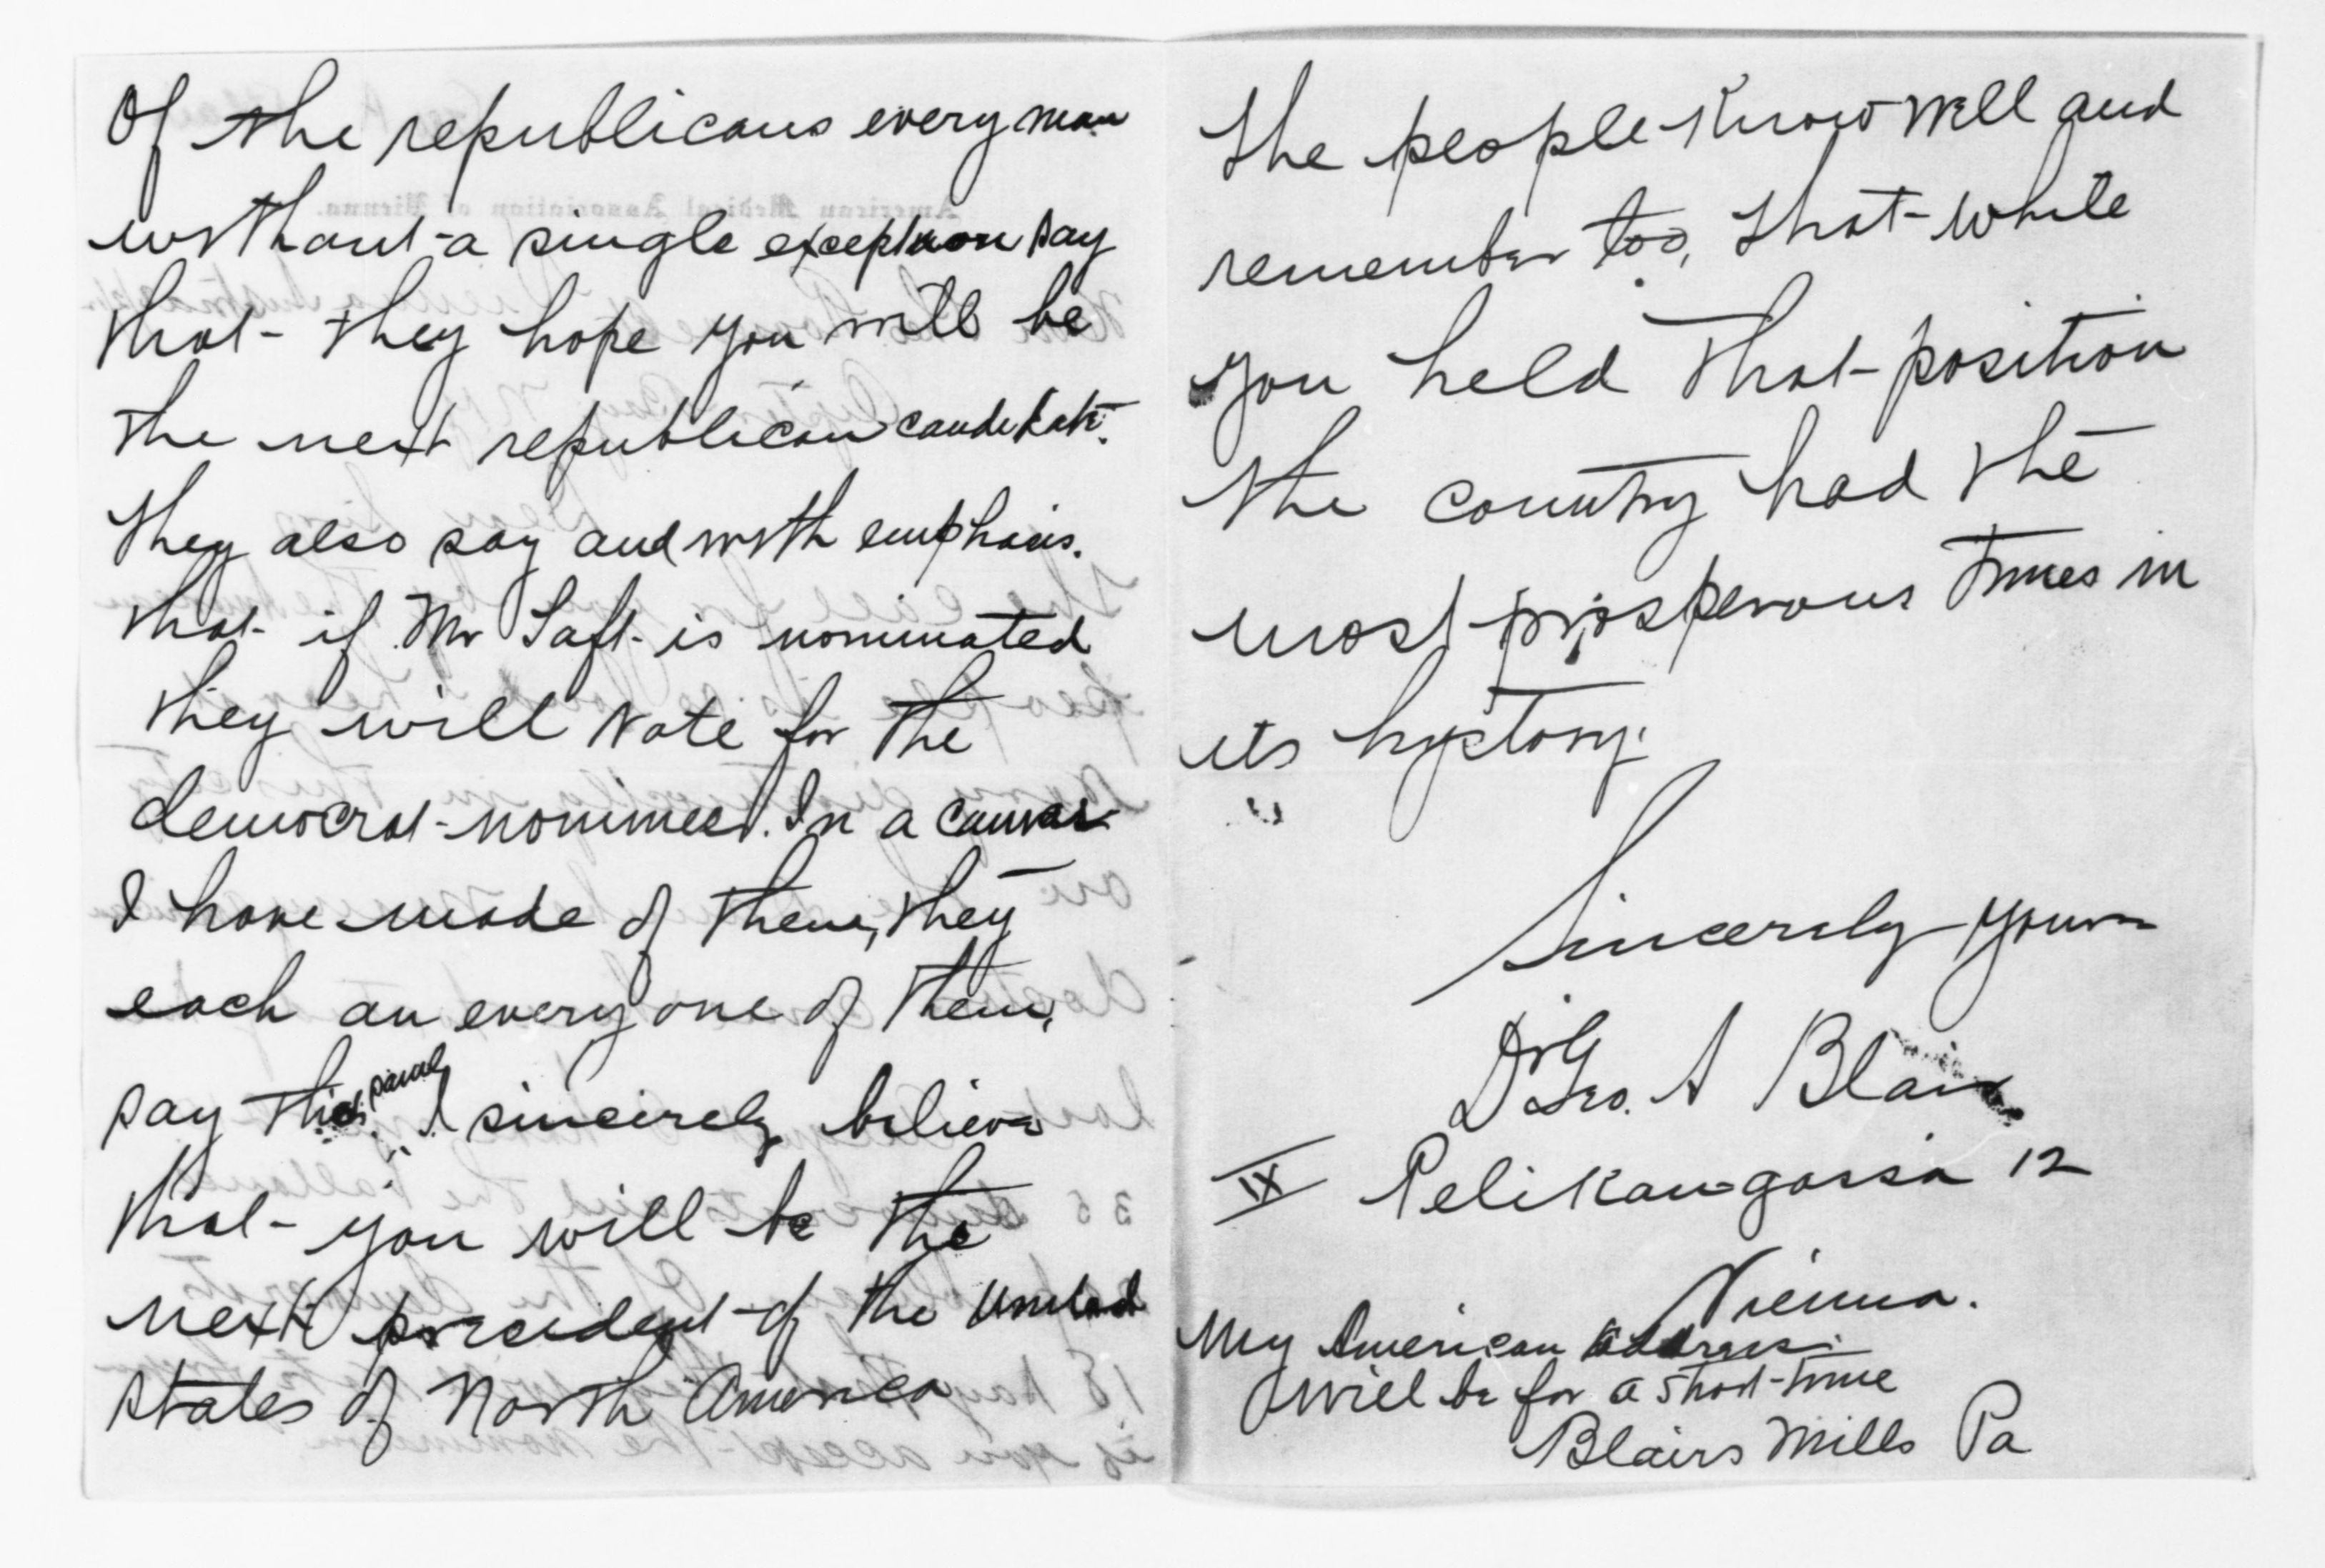 Of the republicans every man
without a single exception say
that they hope you will be
the next republican candidate.
They also say and with emphasis.
that if Mr Taft is nominated
they will vote for the
democrat nominee. In a canvas
I have made of them, they
each an every one of them,
say this. I sincerely believe
that you will be the
next president of the United
States of North America
The people know well and
remember too, that while
you held that position
the country had the
most prosperous times in
its hystory.
Sincerely yours
Dr Geo. A Blair
IX Pelikangassa 12
Vienna.
My American address
will be for a short time
Blairs Mills Pa